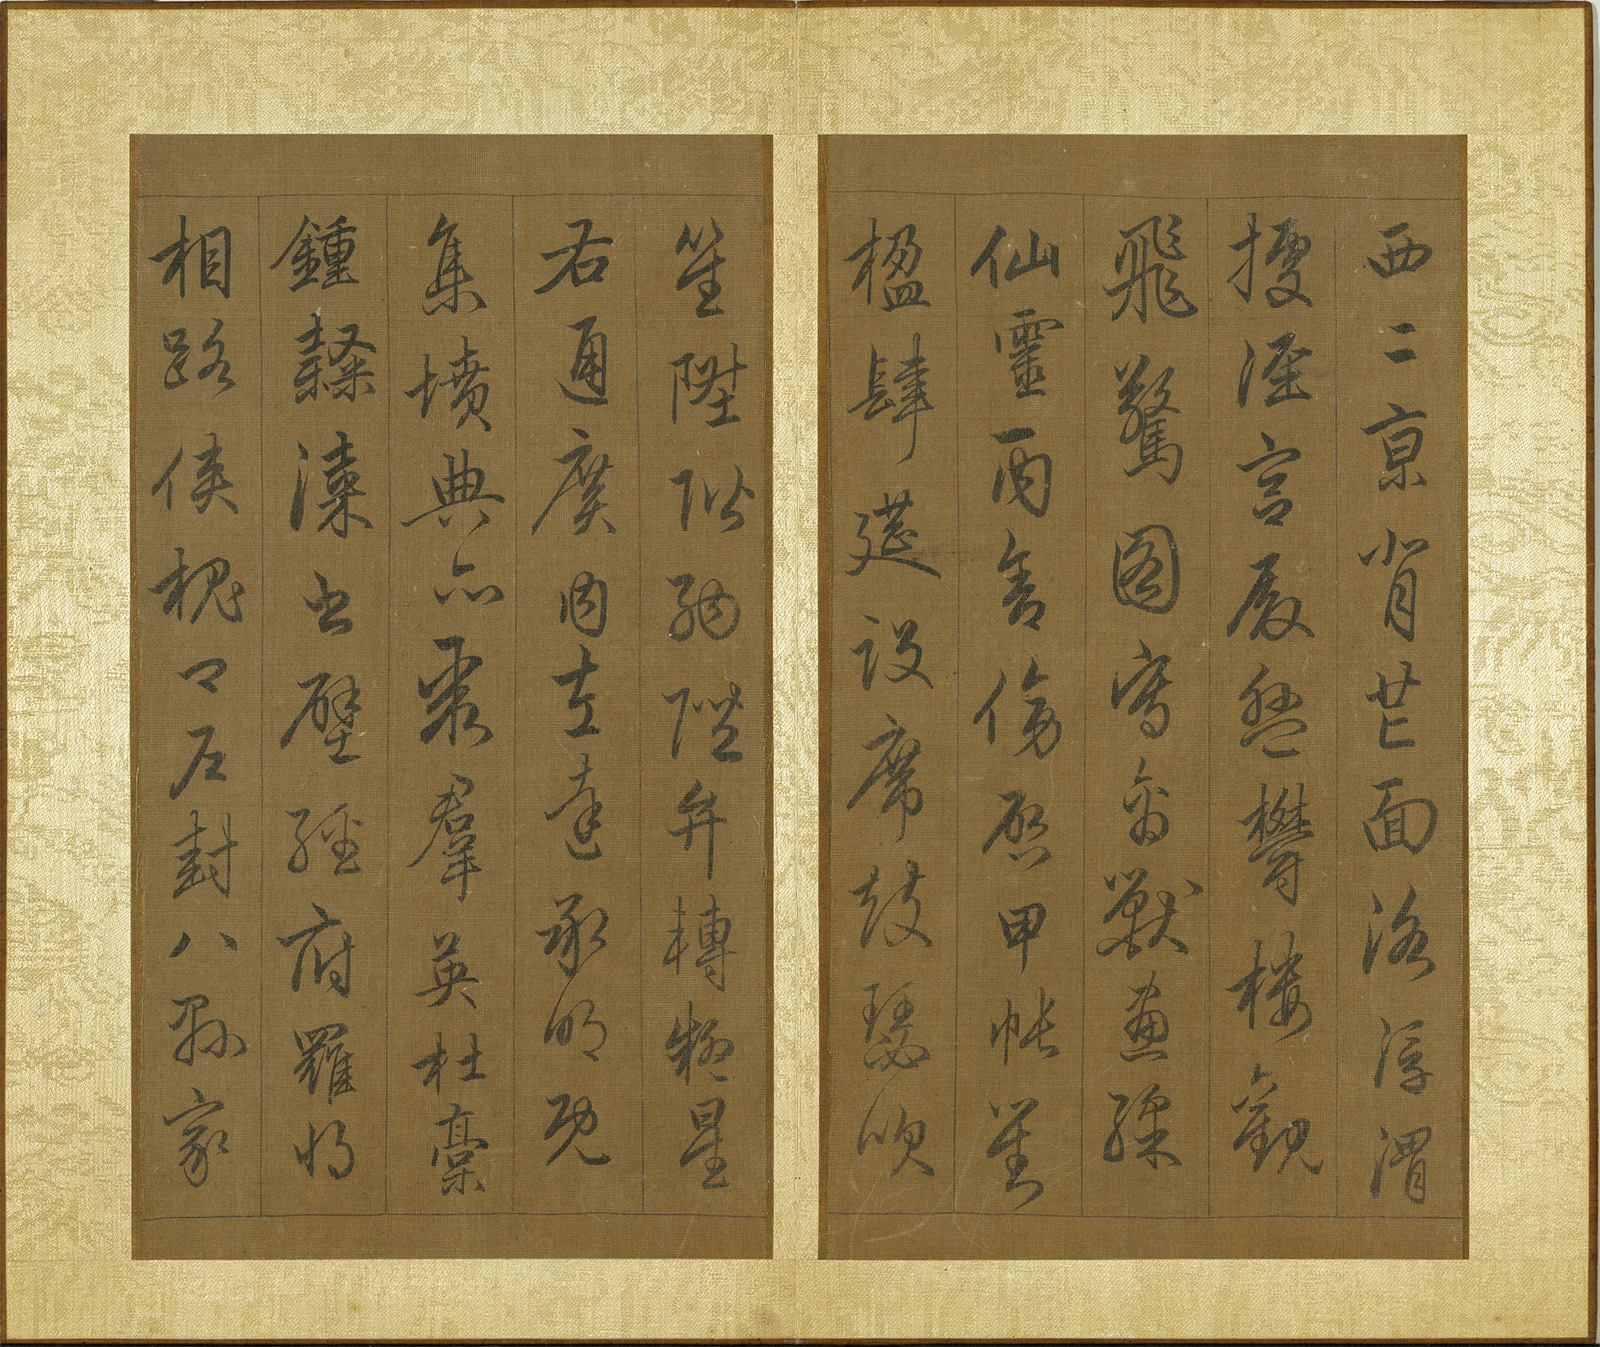 西二京背芒面洛浮渭
據涇宮殿盤鬱樓觀
飛驚圖寫禽獸畫綵
仙靈丙舍傍啓甲帳對
楹肆筵設席鼓瑟吹
笙陞階納陛弁轉疑星
右通廣內左達承明既
集墳典亦聚羣英杜稾
鍾隸漆書壁經府羅將
相路俠槐卿戶封八縣家